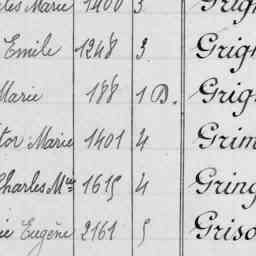 les Marie 1400 3
Emile 1248 3 Grign
Marie 188 1 B. Grign
tor Marie 1401 4 Grim
Charles Mce 1615 4 Gring
ie Eugène 2161 5 Griso